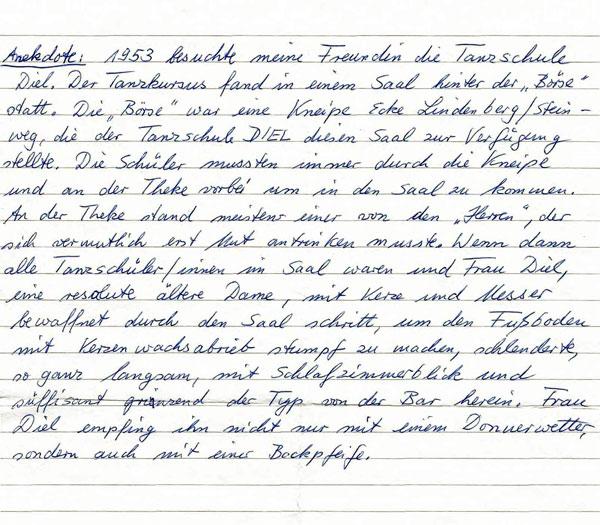 Anekdote: 1953 besuchte meine Freundin die Tanzschule
Diel. Der Tanzkursus fand in einem Saal hinter der „Börse"
statt. Die „Börse" war eine Kneipe Ecke Lindenberg/Stein-
weg, die der Tanzschule DIEL diesen Saal zur Verfügung
stellte. Die Schüler mussten immer durch die Kneipe
und an der Theke vorbei um in den Saal zu kommen.
An der Theke stand meistens einer von den „Herren", der
sich vermutlich erst Mut antrinken musste. Wenn dann
alle Tanzschüler/innen im Saal waren und Frau Diel,
eine resolute ältere Dame, mit Kerze und Messer
bewaffnet durch den Saal schritt, um den Fußboden
mit Kerzenwachsabrieb stumpf zu machen, schlenderte,
so ganz langsam, mit Schlafzimmerblick und
süffisant grinzend der Typ von der Bar herein. Frau
Diel empfing ihn nicht nur mit einem Donnerwetter,
sondern auch mit einer Backpfeife.